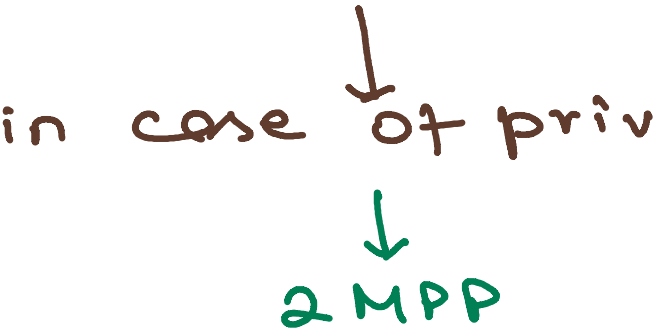 in case of priv
2MPP